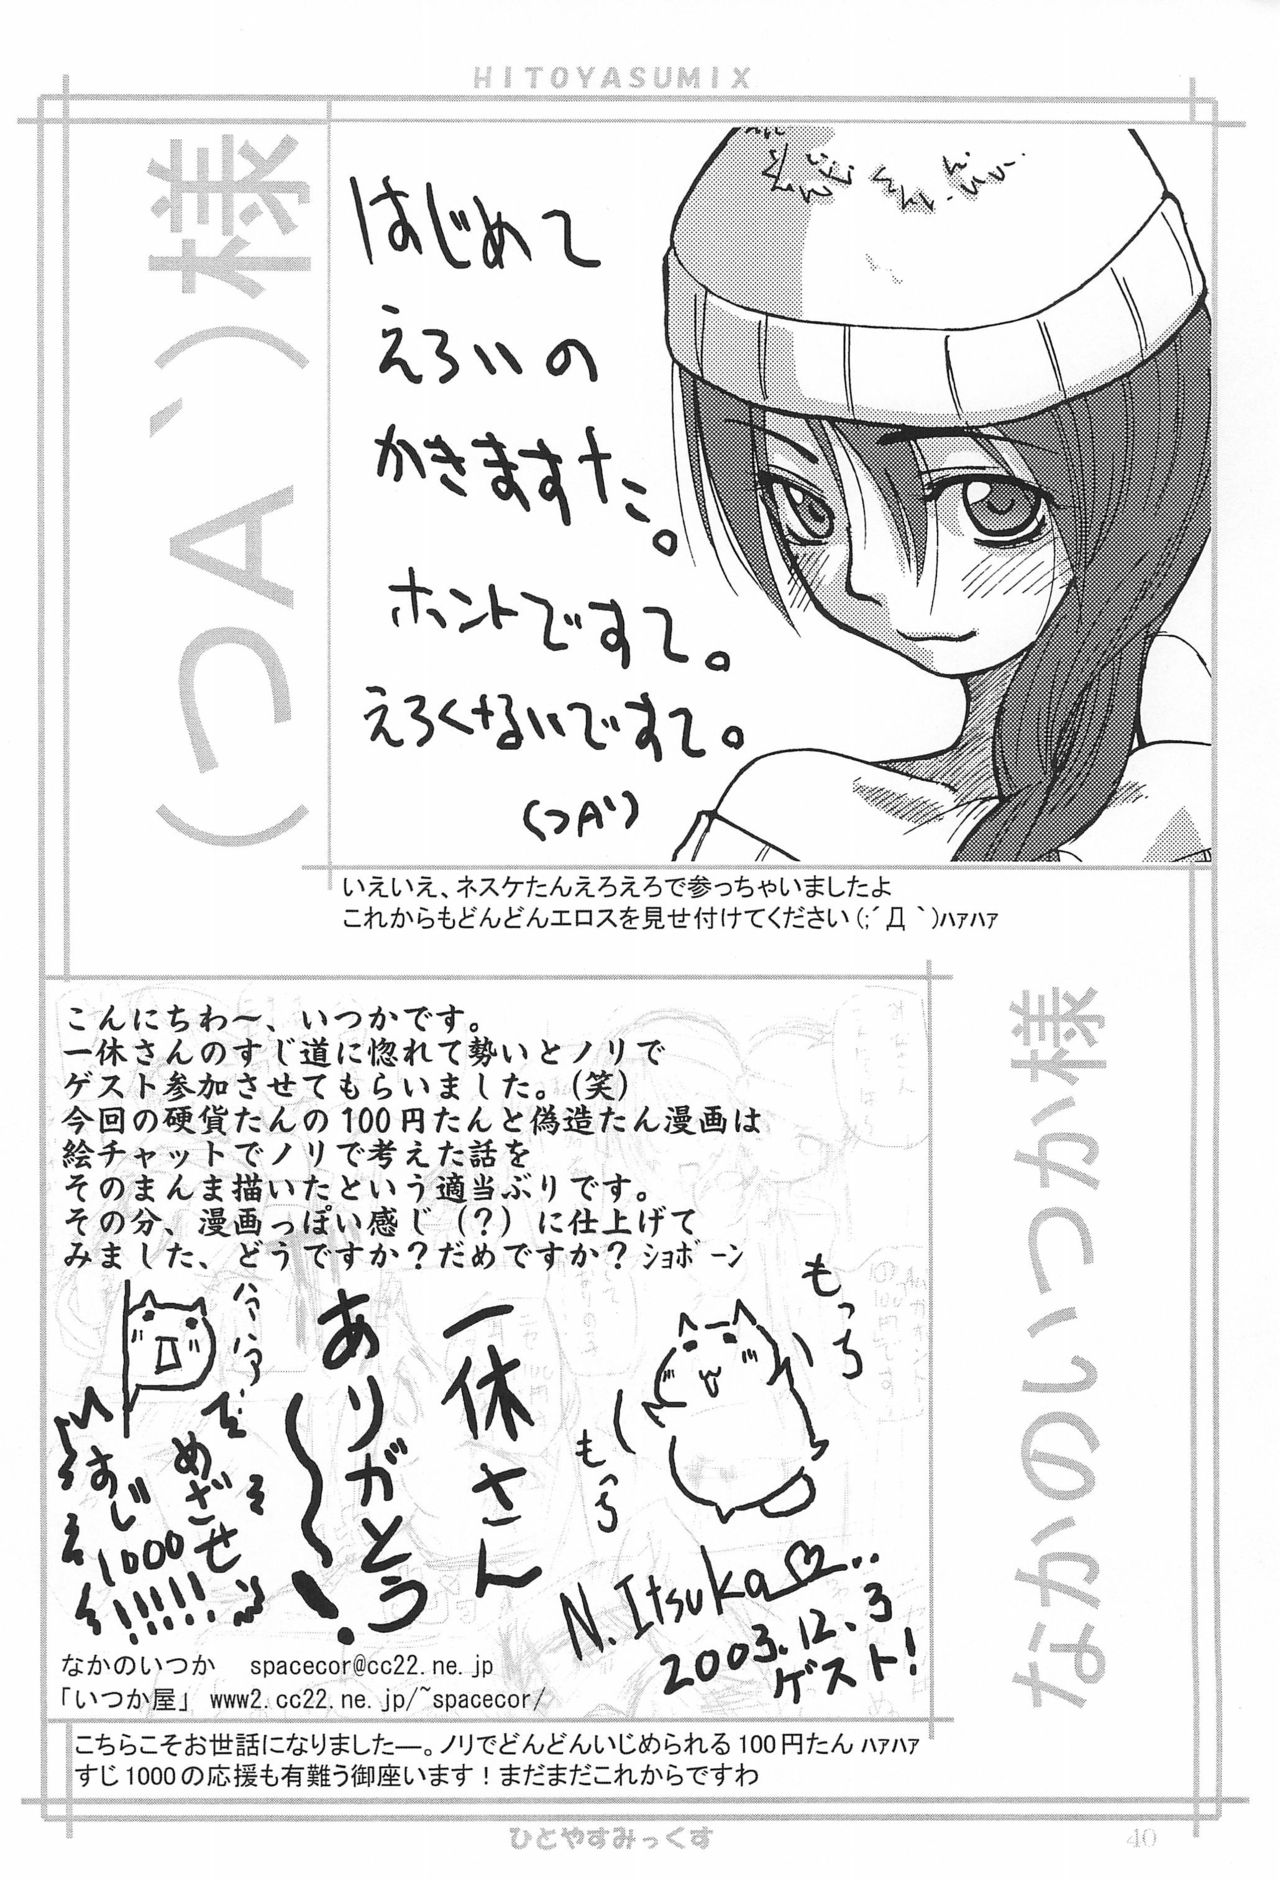 HITOYASUMIX
(つA`)様
はじめて
えろいの
かきますた。
ホントですて。
えろくないですて。
(つA`)
いえいえ、ネスケたんえろえろで参っちゃいましたよ
これからもどんどんエロスを見せ付けてください(;´Д`)ﾊｧﾊｧ
こんにちわ～、いつかです。
一休さんのすじ道に惚れて勢いとノリで
ゲスト参加させてもらいました。(笑)
今回の硬貨たんの100円たんと偽造たん漫画は
絵チャットでノリで考えた話を
そのまんま描いたという適当ぶりです。
その分、漫画っぽい感じ(？)に仕上げて
みました、どうですか？だめですか？ｼｮﾎﾞｰﾝ
なかのいつか様
もっち
もっち
一休さん
ありがとう
～～！
ハァハァ
めざせ
すじ
1000
!!!!!!
N.Itsuka
2003.12.3
ゲスト!
なかのいつか spacecor@cc22.ne.jp
「いつか屋」 www2.cc22.ne.jp/~spacecor/
こちらこそお世話になりました―。ノリでどんどんいじめられる100円たん ﾊｧﾊｧ
すじ1000の応援も有難う御座います！まだまだこれからですわ
ひとやすみっくす
40